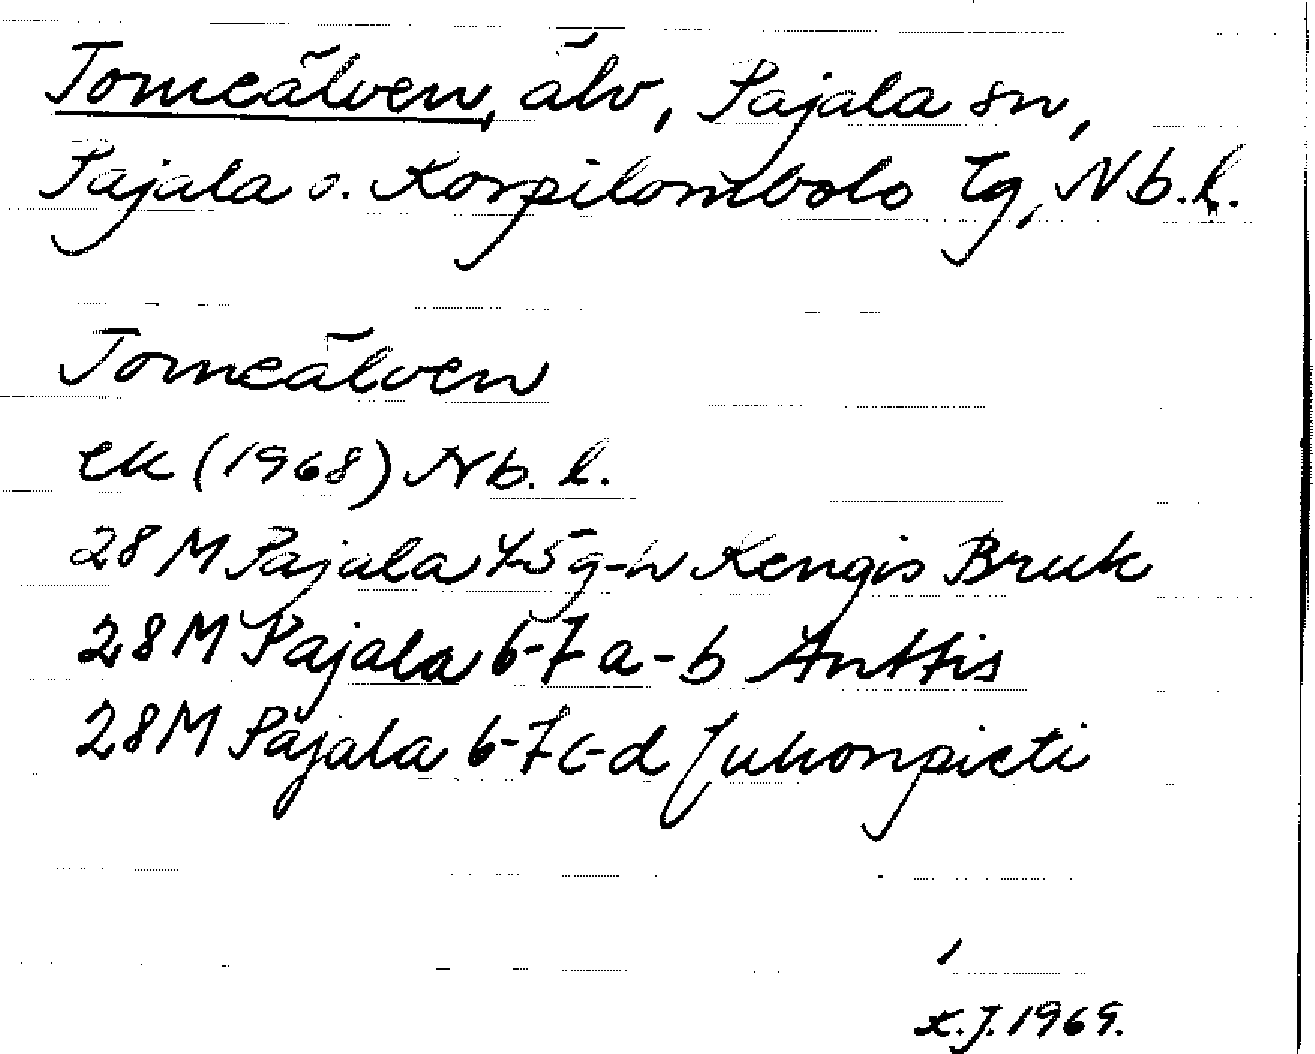 Torneälven, älv, Pajala sn,
Pajala o. Korpilombolo tg, Nb.l.
Torneälven
ek (1968) Nb. l.
28 M Pajala 4-5 g-h Kengis Bruk
28 M Pajala 6-7 a-b Anttis
28 M Pajala 6-7 c-d Juhonpieti
K.J. 1969.